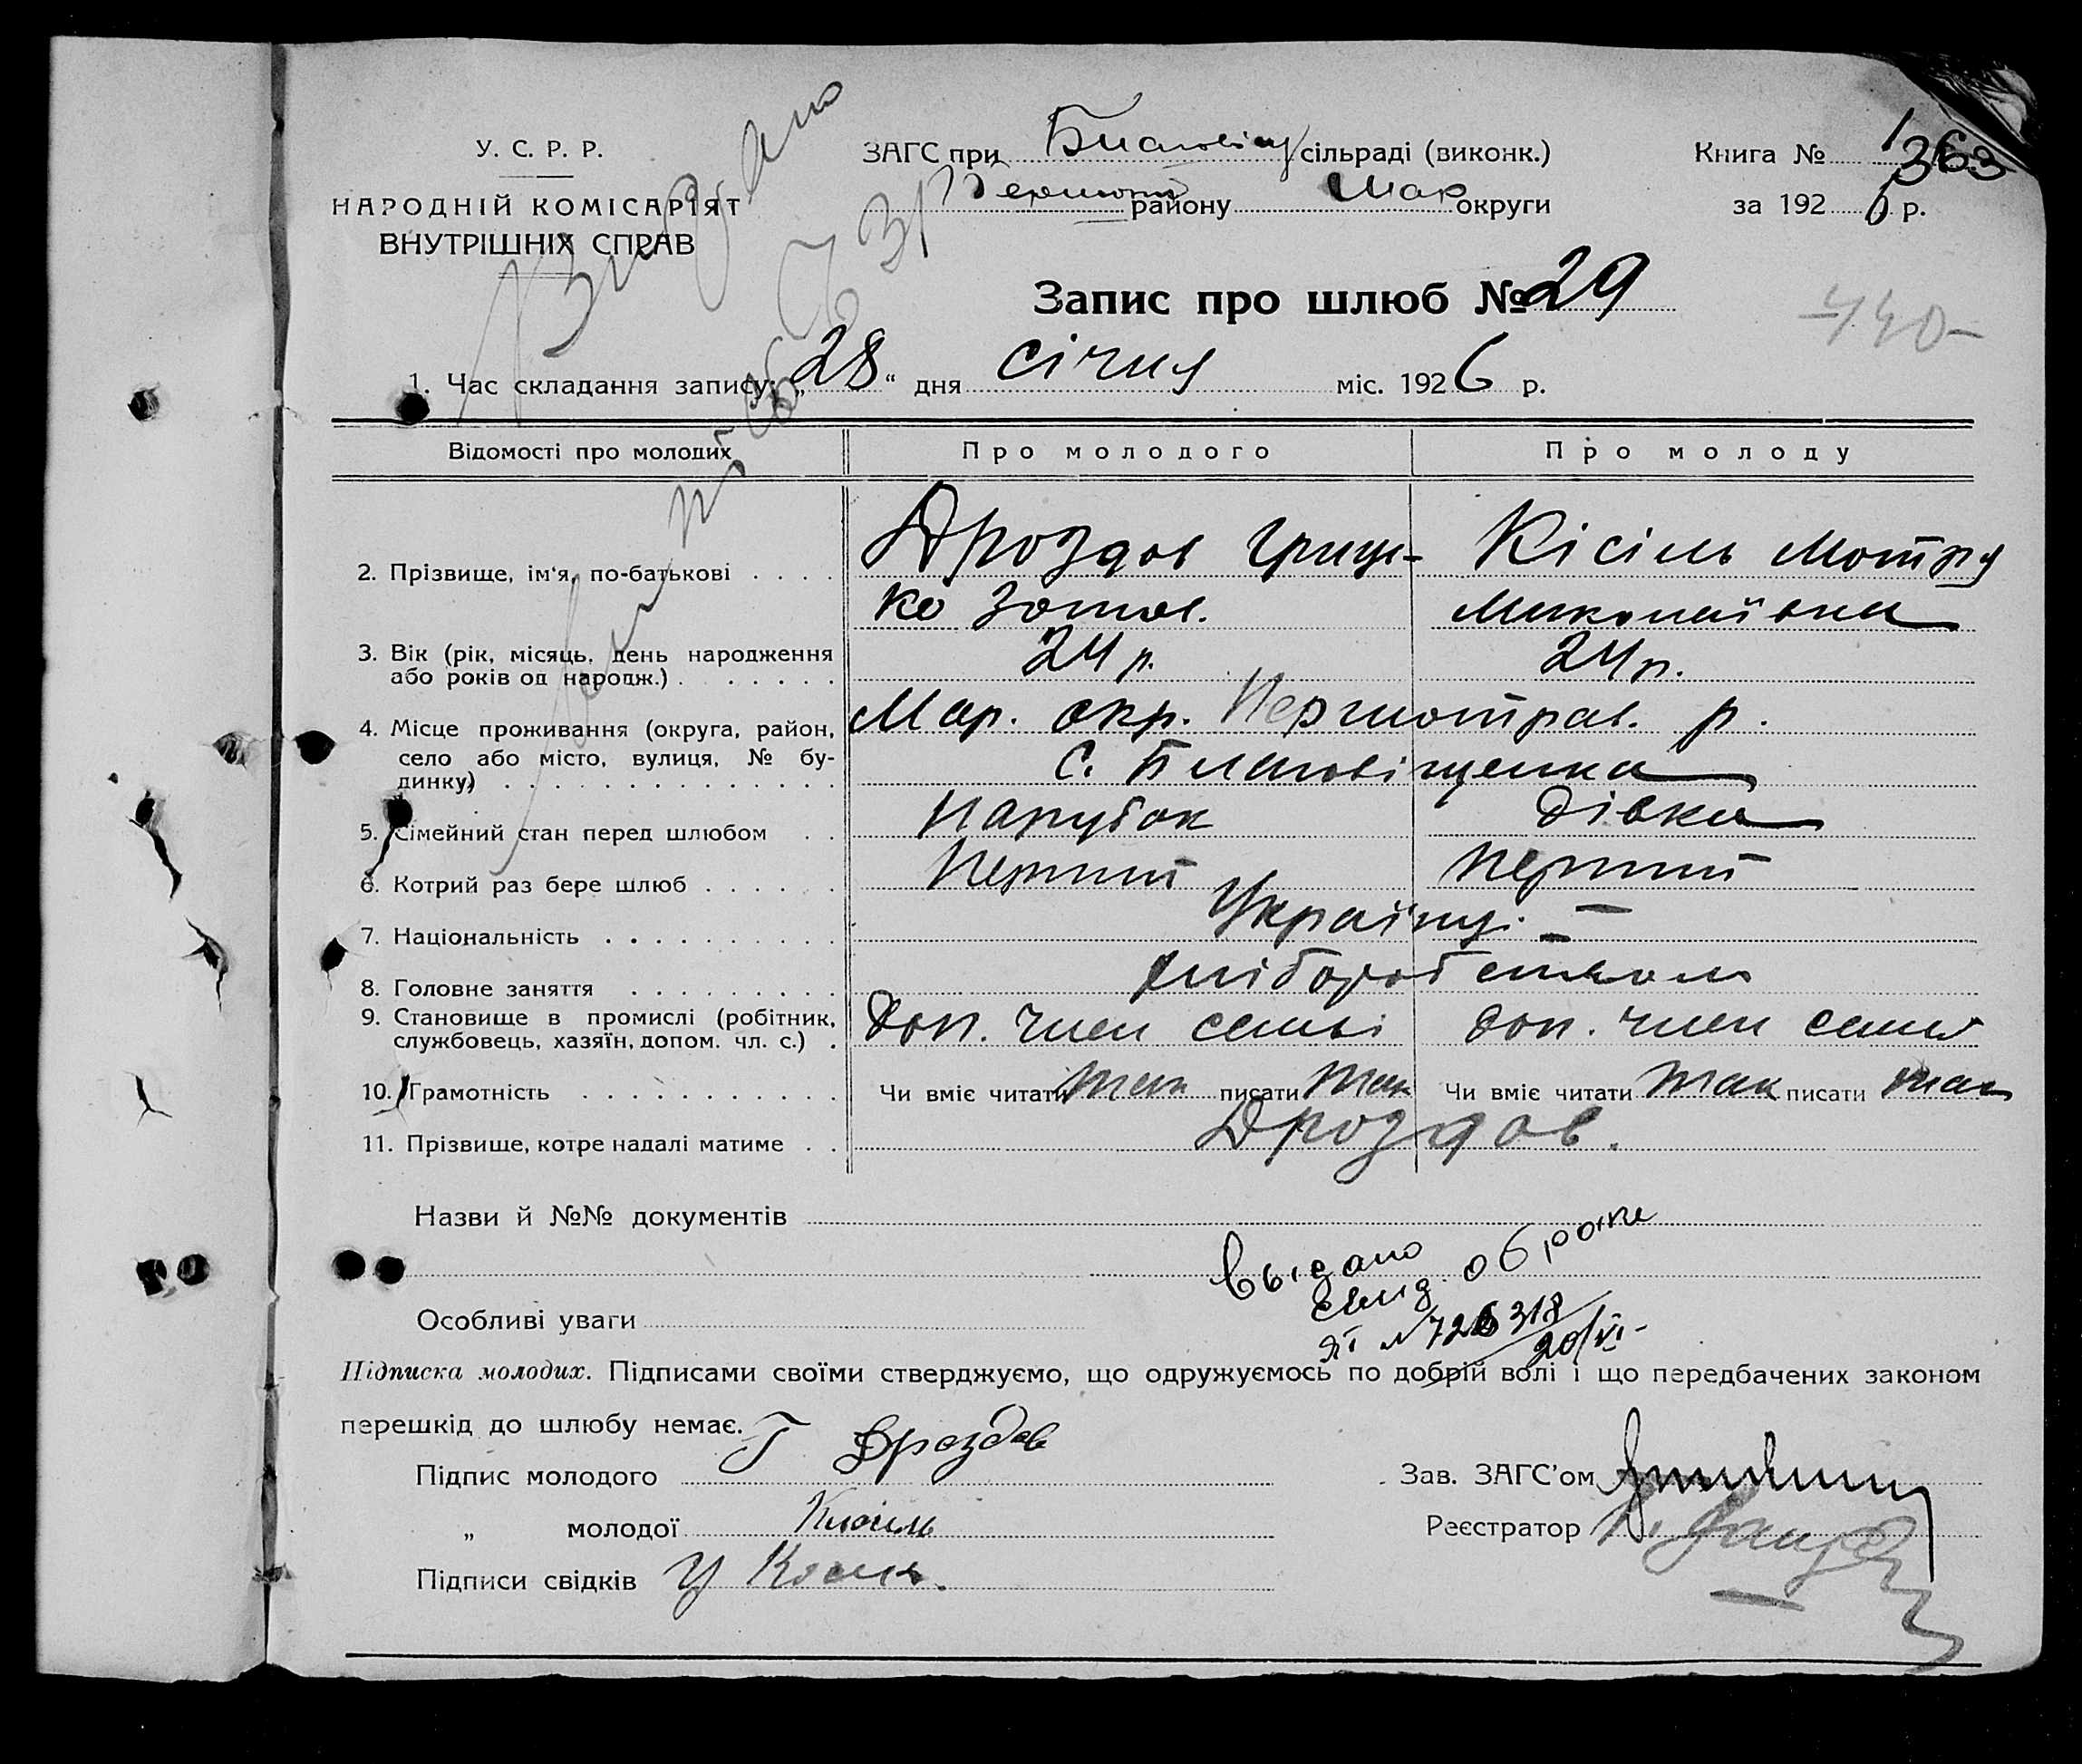 У. С. Р. Р.
НАРОДНІЙ КОМІСАРІЯТ
ВНУТРІШНІХ СПРАВ
ЗАГС при Благовіщ сільраді (виконк.)
району Мар округи
Книга № 1
363
за 1926 р.
Запис про шлюб № 29
440
1. Час складання запису: „28“ дня січня міс. 1926 р.
Відомості про молодих Про молодого Про молоду
2. Прізвище, ім'я, по-батькові . . . . Дроздов Гриць- Кісіль Мотря
ко Зотов. Миколаївна
3. Вік (рік, місяць, день народження
або років од народж.) . . . . . . . 24 р. 24 р.
4. Місце проживання (округа, район, Мар. окр. Першотрав. р.
село або місто, вулиця, № бу-
динку) С. Благовіщенка
5. Сімейний стан перед шлюбом . . парубок дівка
6. Котрий раз бере шлюб . . . . . . перший перший
7. Національність . . . . . . . . . . Українці
8. Головне заняття . . . . . . . . . хліборобством
9. Становище в промислі (робітник,
службовець, хазяїн, допом. чл. с.) . Доп. член семьі доп. член семьї
10. Грамотність . . . . . . . . . . . Чи вміє читати так писати так Чи вміє читати так писати так
11. Прізвище, котре надалі матиме . . Дроздов.
Назви й №№ документів
Выдано
свид о браке
ЯІ № 726318
20/VI
Особливі уваги
Підписка молодих. Підписами своїми стверджуємо, що одружуємось по добрій волі і що передбачених законом
перешкід до шлюбу немає.
Підпис молодого Г Дроздов
„ молодої Кисиль
Підписи свідків
Зав. ЗАГС'ом
Реєстратор